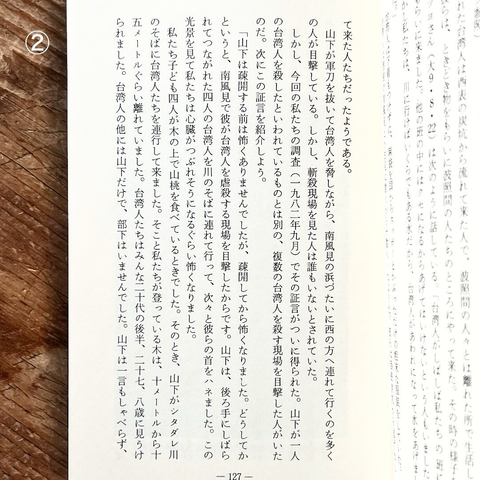 ②
て来た人たちだったようである。
山下が軍刀を抜いて台湾人を脅しながら、南風見の浜づたいに西の方へ連れて行くのを多く
の人が目撃している。しかし、斬殺現場を見た人は誰もいないとされていた。
しかし、今回の私たちの調査(一九八二年九月)でその証言がついに得られた。山下が一人
の台湾人を殺したといわれているものとは別の、複数の台湾人を殺す現場を目撃した人がいた
のだ。次にこの証言を紹介しよう。
「山下は疎開する前は怖くありませんでしたが、疎開してから怖くなりました。どうしてか
というと、南風見で彼が台湾人を虐殺する現場を目撃したからです。山下は、後ろ手にしばら
れてつながれた四人の台湾人を川のそばに連れて行って、次々と彼らの首をハネました。この
光景を見て私たちは心臓がつぶれそうになるぐらい怖くなりました。
私たち子ども四人が木の上で山桃を食べているときでした。そのとき、山下がシタダレ川
のそばに台湾人たちを連行して来ました。そこと私たちが登っている木は、十メートルから十
五メートルぐらい離れていました。台湾人たちはみんな二十代の後半、二十七、八歳に見うけ
られました。台湾人の他には山下だけで、部下はいませんでした。山下は一言もしゃべらず、
— 127 —